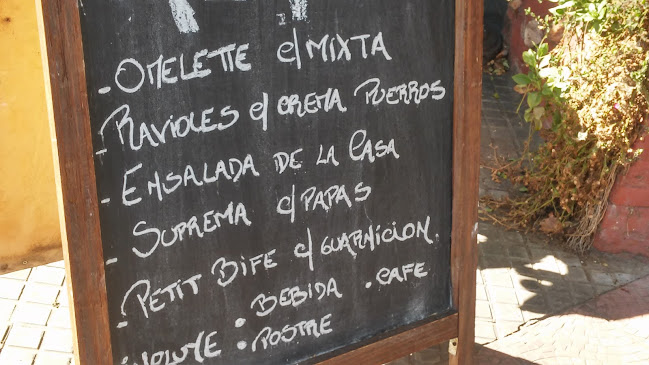 - OMELETTE c/ MIXTA
- RAVIOLES c/ CREMA PUERROS
- ENSALADA DE LA CASA
- SUPREMA c/ PAPAS
- PETIT BIFE c/ GUARNICION.
INCLUYE • BEBIDA • CAFE
• POSTRE